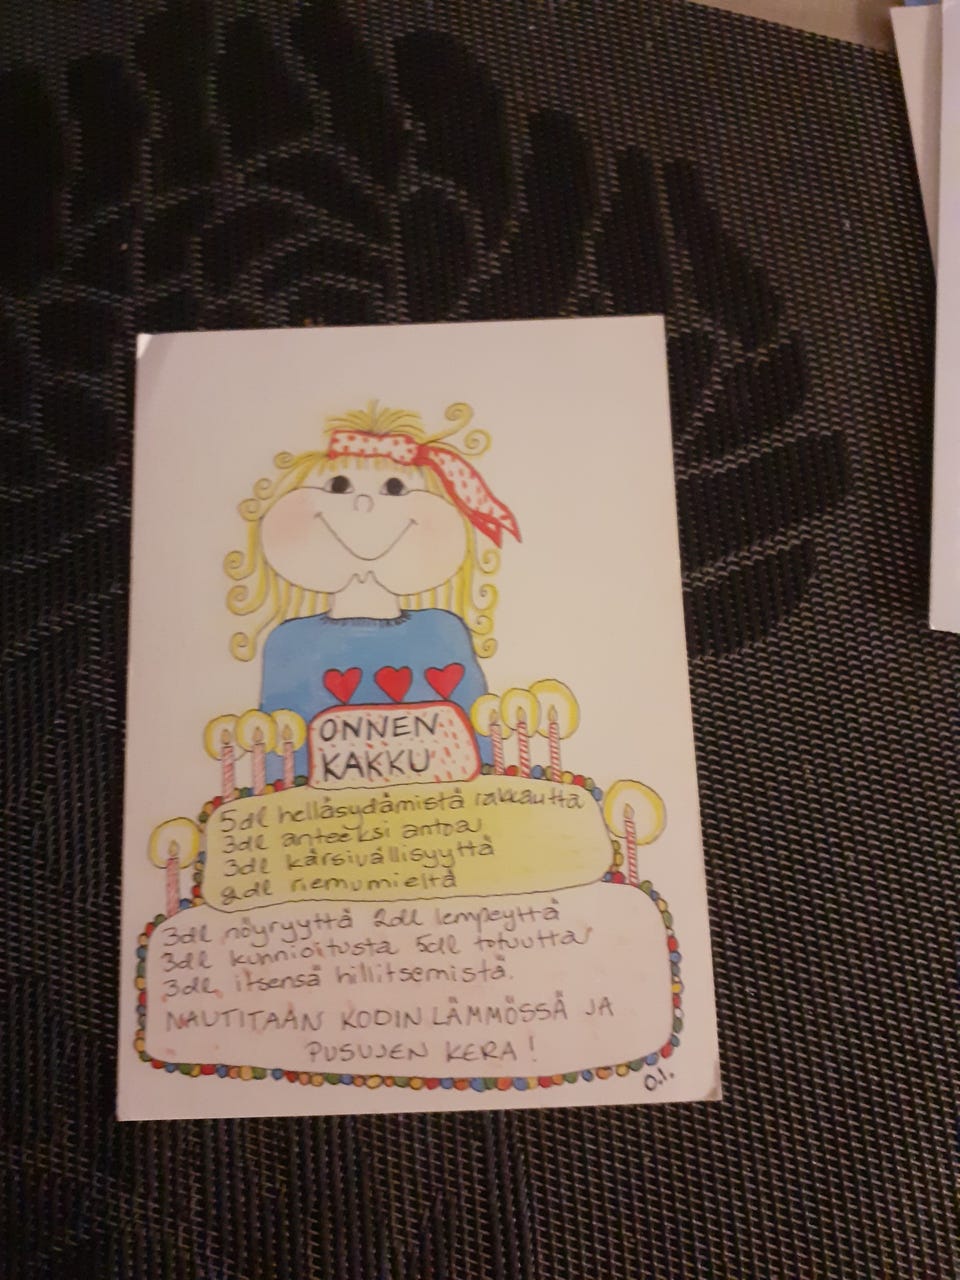 ONNEN
KAKKU
5dl hellåsydåmistå rakkautta
3dl anteeksi antoa
3dl kårsivållisyyttå
2dl riemumieltå
3dl nöyryyttå 2dl lempeyttå
3dl kunnioitusta 5dl totuutta
3dl itsenså hillitsemistå.
NAUTITAAN KODIN LÄMMÖSSÄ JA
PUSUJEN KERA!
O.I.